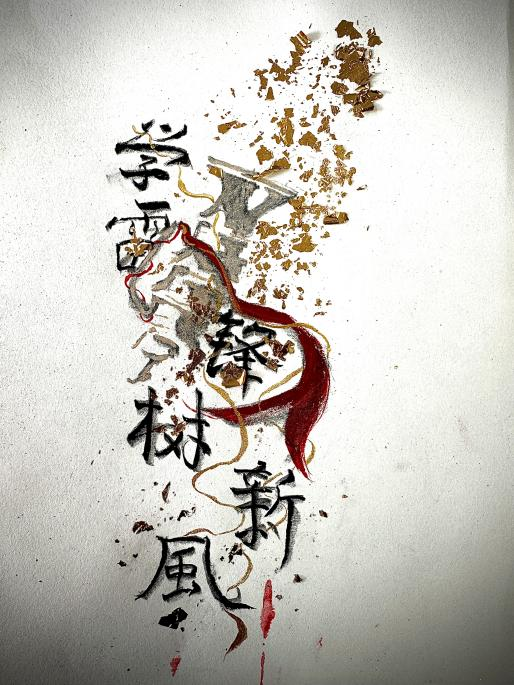 学雷锋
树新風